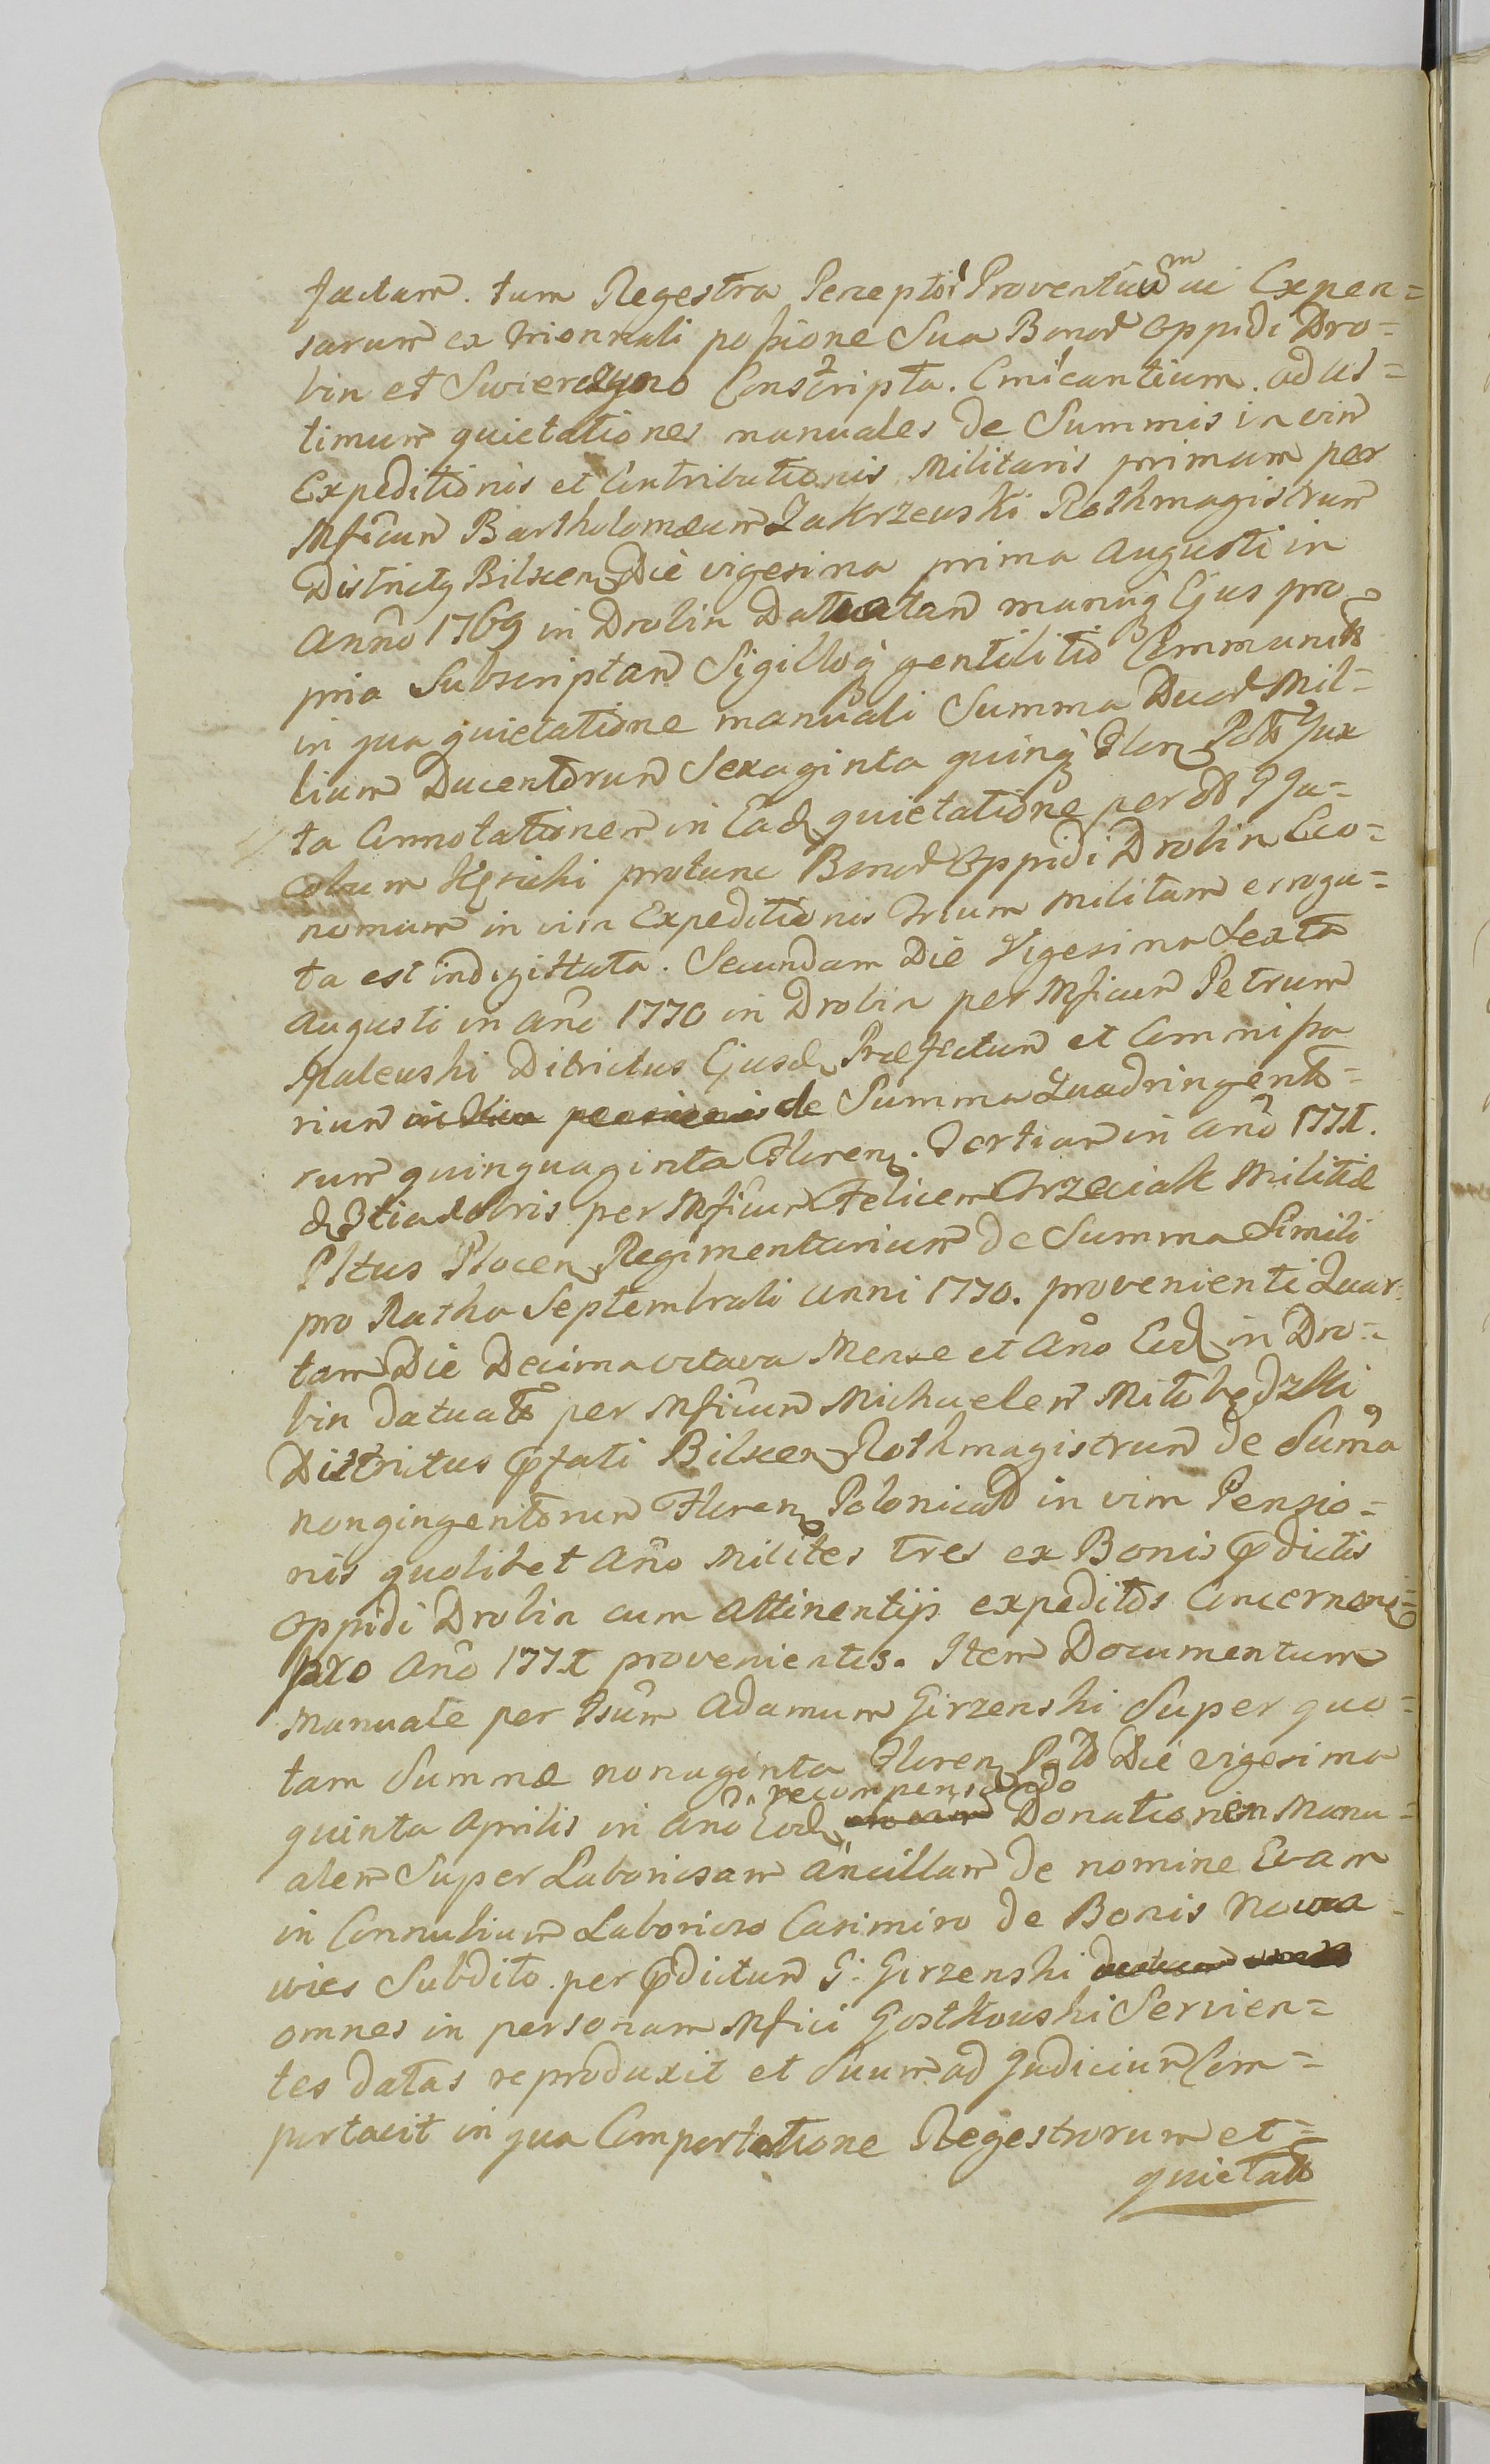 factam. tum Regestra Percepto Proventuum ac Expen=
sarum ex triennali poſsione Sua Bonor Oppidi Dro=
bin et Swierczyno Conscripta. Emicantium. ad ul=
timum quietationes manuales de Summis in vim
Expeditionis et Contributionis Militaris primam per
Mficum Bartholomæum Zakrzewski Rothmagistrum
Districtq Bilscen Die vigesima prima Augusti in
Anno 1769 in Drobin Datuatam manuq Ejus pro
pria Subscriptam Sigilloq gentilitio Communit
in qua quietatione manuali Summa Duor Mil=
lium Ducentorum Sexaginta quinq Floren Poll Jux
ta Annotationem in Ead quietatione per G Ja=
cobum protunc Bonor Oppidi Drobin Eco=
nomum in vim Expeditionis Trium militum erroga=
ta est indigittata. Secundam Die Vigesima Sexta
Augusti in Ano 1770 in Drobin per Mficum Petrum
Ditrictus Ejusd Præfectum et Commiſsa
rium de Summa Quadringento=
rum quinquaginta Floren. Tertiam in Ano 1771.
d 3tia xbris per Mficum Felicem Trzeciak Militiæ
Pltus Plocen Regimentarium de Summa Simili
pro Ratha Septembrali anni 1770. provenienti Quar
tam Die Decima octava Mense et Ano Eod in Dro=
bin datuat per Mficum Michaelem Miłobędzki
Districtus pfati Bilscen Rothmagistrum de Suma
nongingentorum Floren Polonical in vim Pensio=
nis quolibet Ano Milites tres ex Bonis pdictis
Oppidi Drobin cum Attinentijs expeditos Concernen=
pro Ano 1771 provenientis. Item Documentum
Manuale per Gsum Adamum Girzenski Super quo=
tam Summæ nonaginta Floren Poll Die vigesima
recompensando
quinta Aprilis in Ano Eod Donationem Manu=
alem Super Laboriosam Ancillam de nomine Evam
in Connubium Laborioso Casimiro de Bonis Nowa=
wies Subdito per pdictum G. Girzenski
omnes in personam Mfici Gostkowski Servien=
tes datas reproduxit et Suum ad Judicium Com=
portavit in qua Comportatione Regestrorum et=
quietat